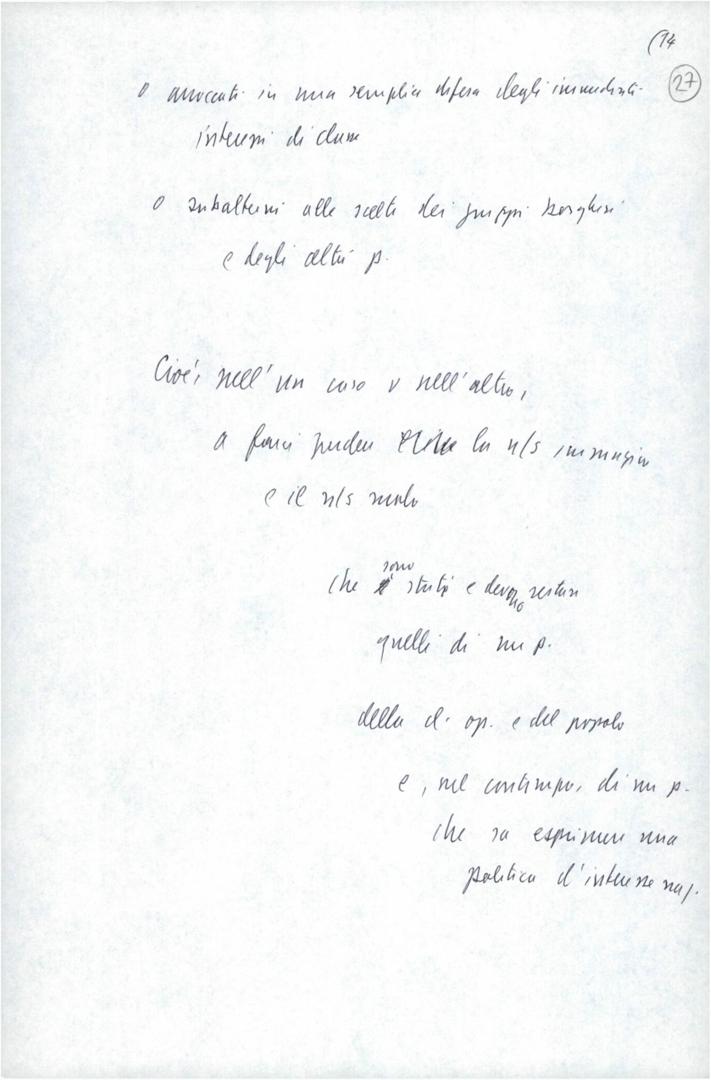 (14
27
o arroccati in una semplice difesa degli immediati
interessi di classe
o subalterni alle scelte dei gruppi borghesi
e degli altri p.
Cioè, nell'un caso o nell'altro,
a farci perdere la n/s immagine
e il n/s ruolo
che sono stati e devono restare
quelli di un p.
della cl. op. e del popolo
e, nel contempo, di un p.
che sa esprimere una
politica d'interesse naz.